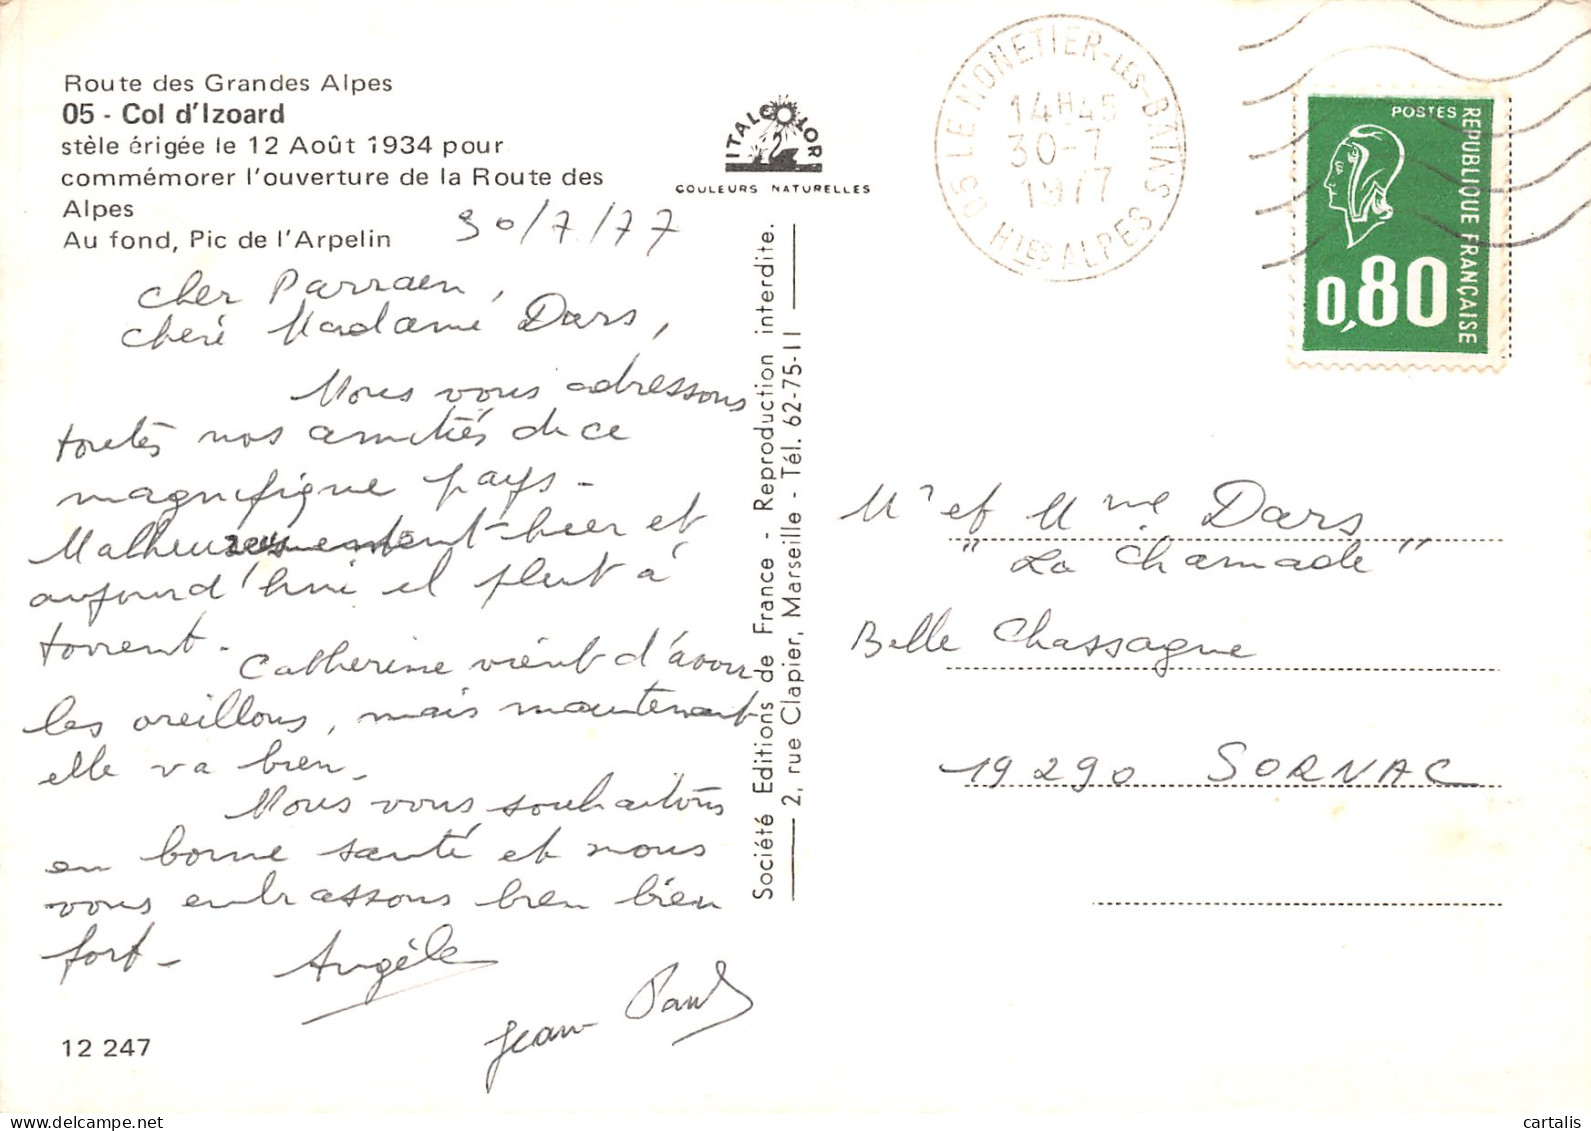 Route des Grandes Alpes
05 - Col d'Izoard
stèle érigée le 12 Août 1934 pour
commémorer l'ouverture de la Route des
Alpes
Au fond, Pic de l'Arpelin
30/7/77
Cher Parraen,
Cheré Madame Dars,
Nous vous adressons
toutes nos amitiés de ce
magnifique pays -
Malheureusement hier et
aujourd'hui il pleut à
torrent -
Catherine vient d'avoir
les oreillons, mais maintenant
elle va bien -
Nous vous souhaitons
en bonne santé et nous
vous embrassons bien bien
fort -
Angèle
Jean Paul
12 247
ITALCOLOR
COULEURS NATURELLES
Société Editions de France - Reproduction interdite.
2, rue Clapier, Marseille - Tél. 62-75-11
05 LE MONETIER-LES-BAINS
14H45
30-7
1977
HTES ALPES
POSTES
REPUBLIQUE FRANÇAISE
0,80
Mr et Mme Dars
"La Chamade"
Belle Chassagne
19290 SORNAC
delcampe.net
cartalis